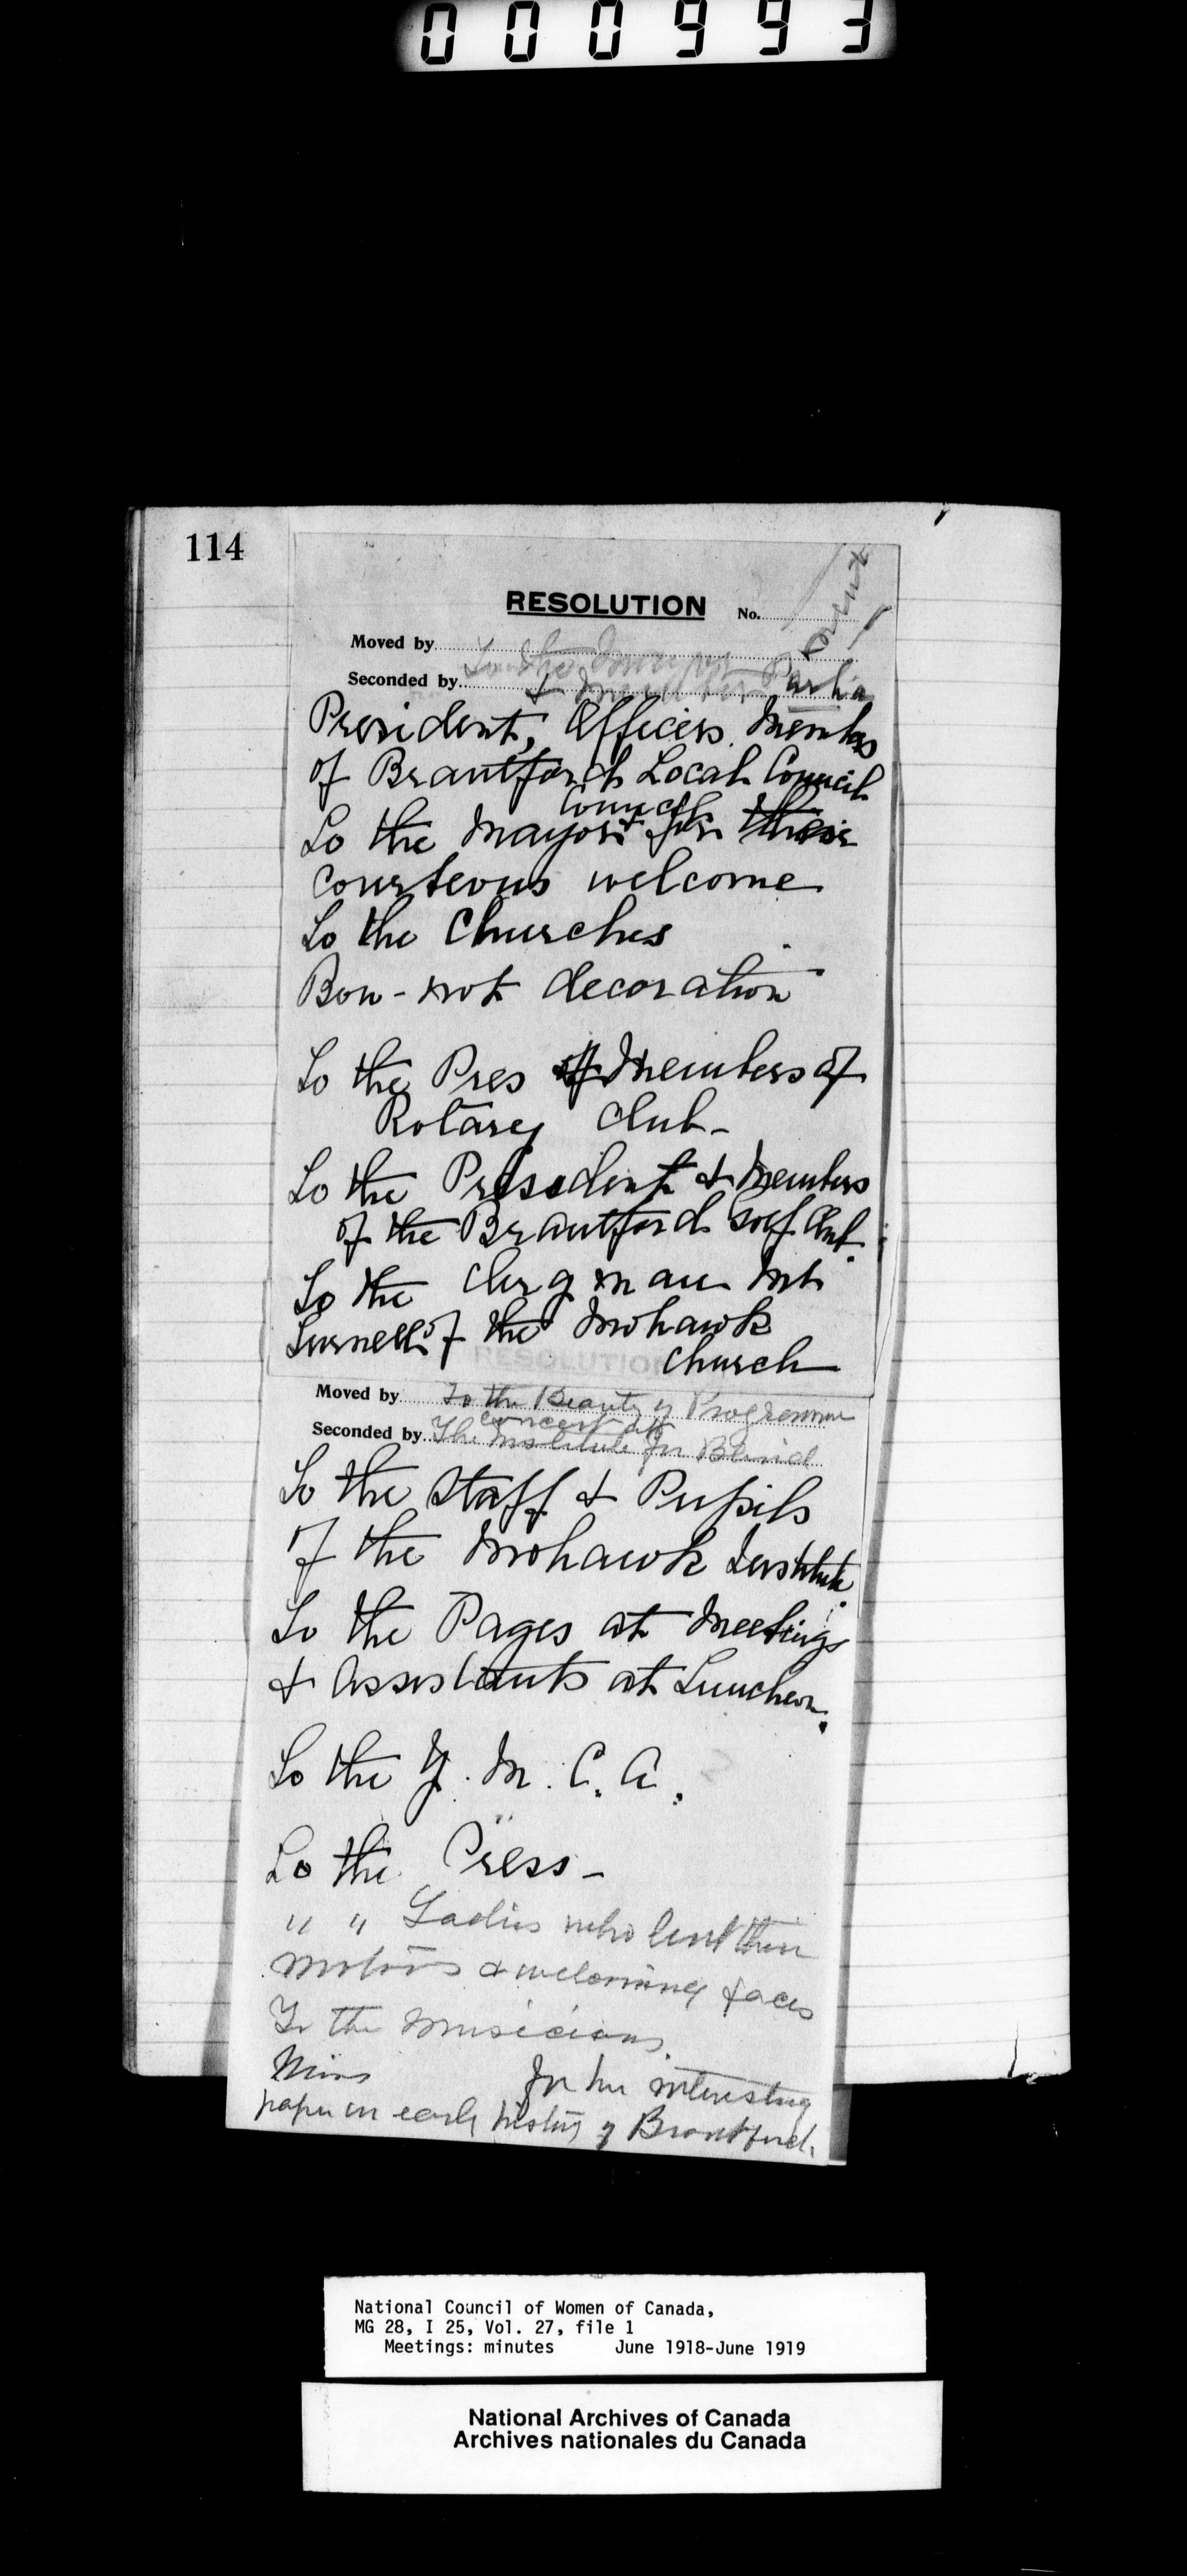 000993
114
RESOLUTION No.
Moved by To the
Seconded by & Parlia
ment
President, Officers Members
of Brantford Local Council
Council
To the Mayor & for their
courteous welcome
To the Churches
Bow-not decoration
To the Pres & Members of
Rotarey Club-
To the President & Members
of the Brantford Golf Club.
To the clergman Mr
Turnell of the Mohawk
church
RESOLUTION
Moved by To the Beauty of Programme
concert at
Seconded by The Institute for Blind
To the Staff & Pupils
of the Mohawk Institute.
To the Pages at Meetings
& Assistants at Luncheon.
To the Y. M. C. A.
To the Press-
" " Ladies who lent their
motors & welcoming faces
To the Musicians.
Miss for her interesting
paper on early history of Brantford.
National Council of Women of Canada,
MG 28, I 25, Vol. 27, file 1
Meetings: minutes June 1918-June 1919
National Archives of Canada
Archives nationales du Canada